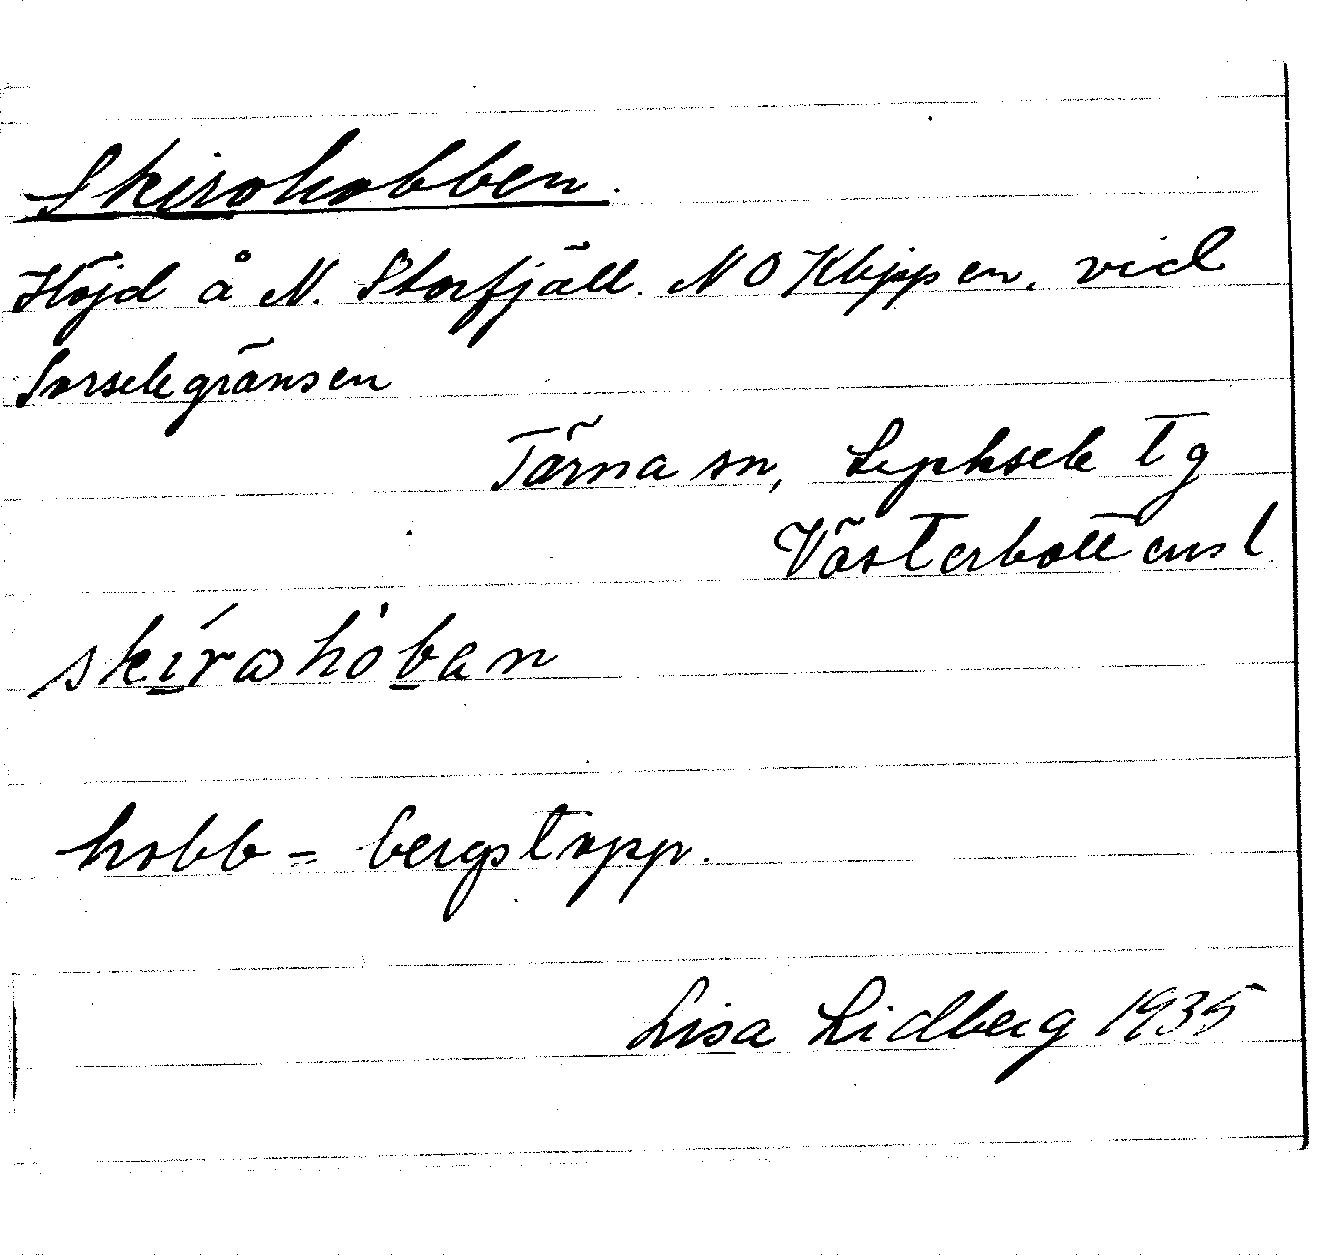 Skirohobben.
Höjd å N. Storfjäll. NO Klippen, vid
Sorselegränsen
Tärna sn, Lycksele tg
Västerbottens l
skírαhòban
hobb = bergstopp.
Lisa Lidberg 1935